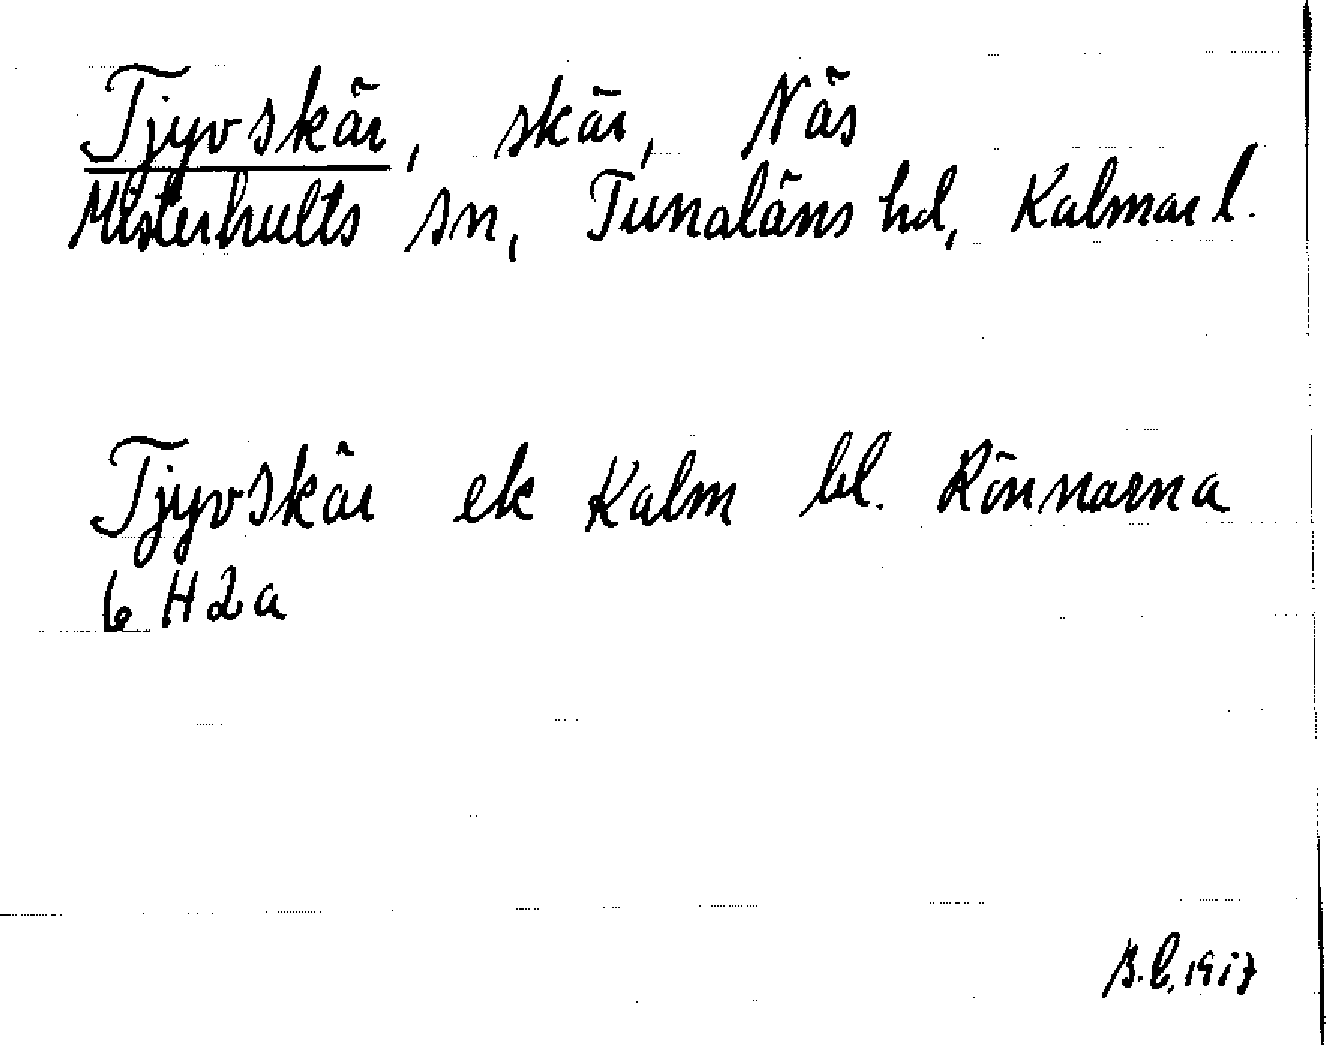 Tjyvskär, skär, Näs
Misterhults sn, Tunaläns hd, Kalmar l.
Tjyvskär ek Kalm bl. Rönnarna
6 H 2 a
B.E. 1917